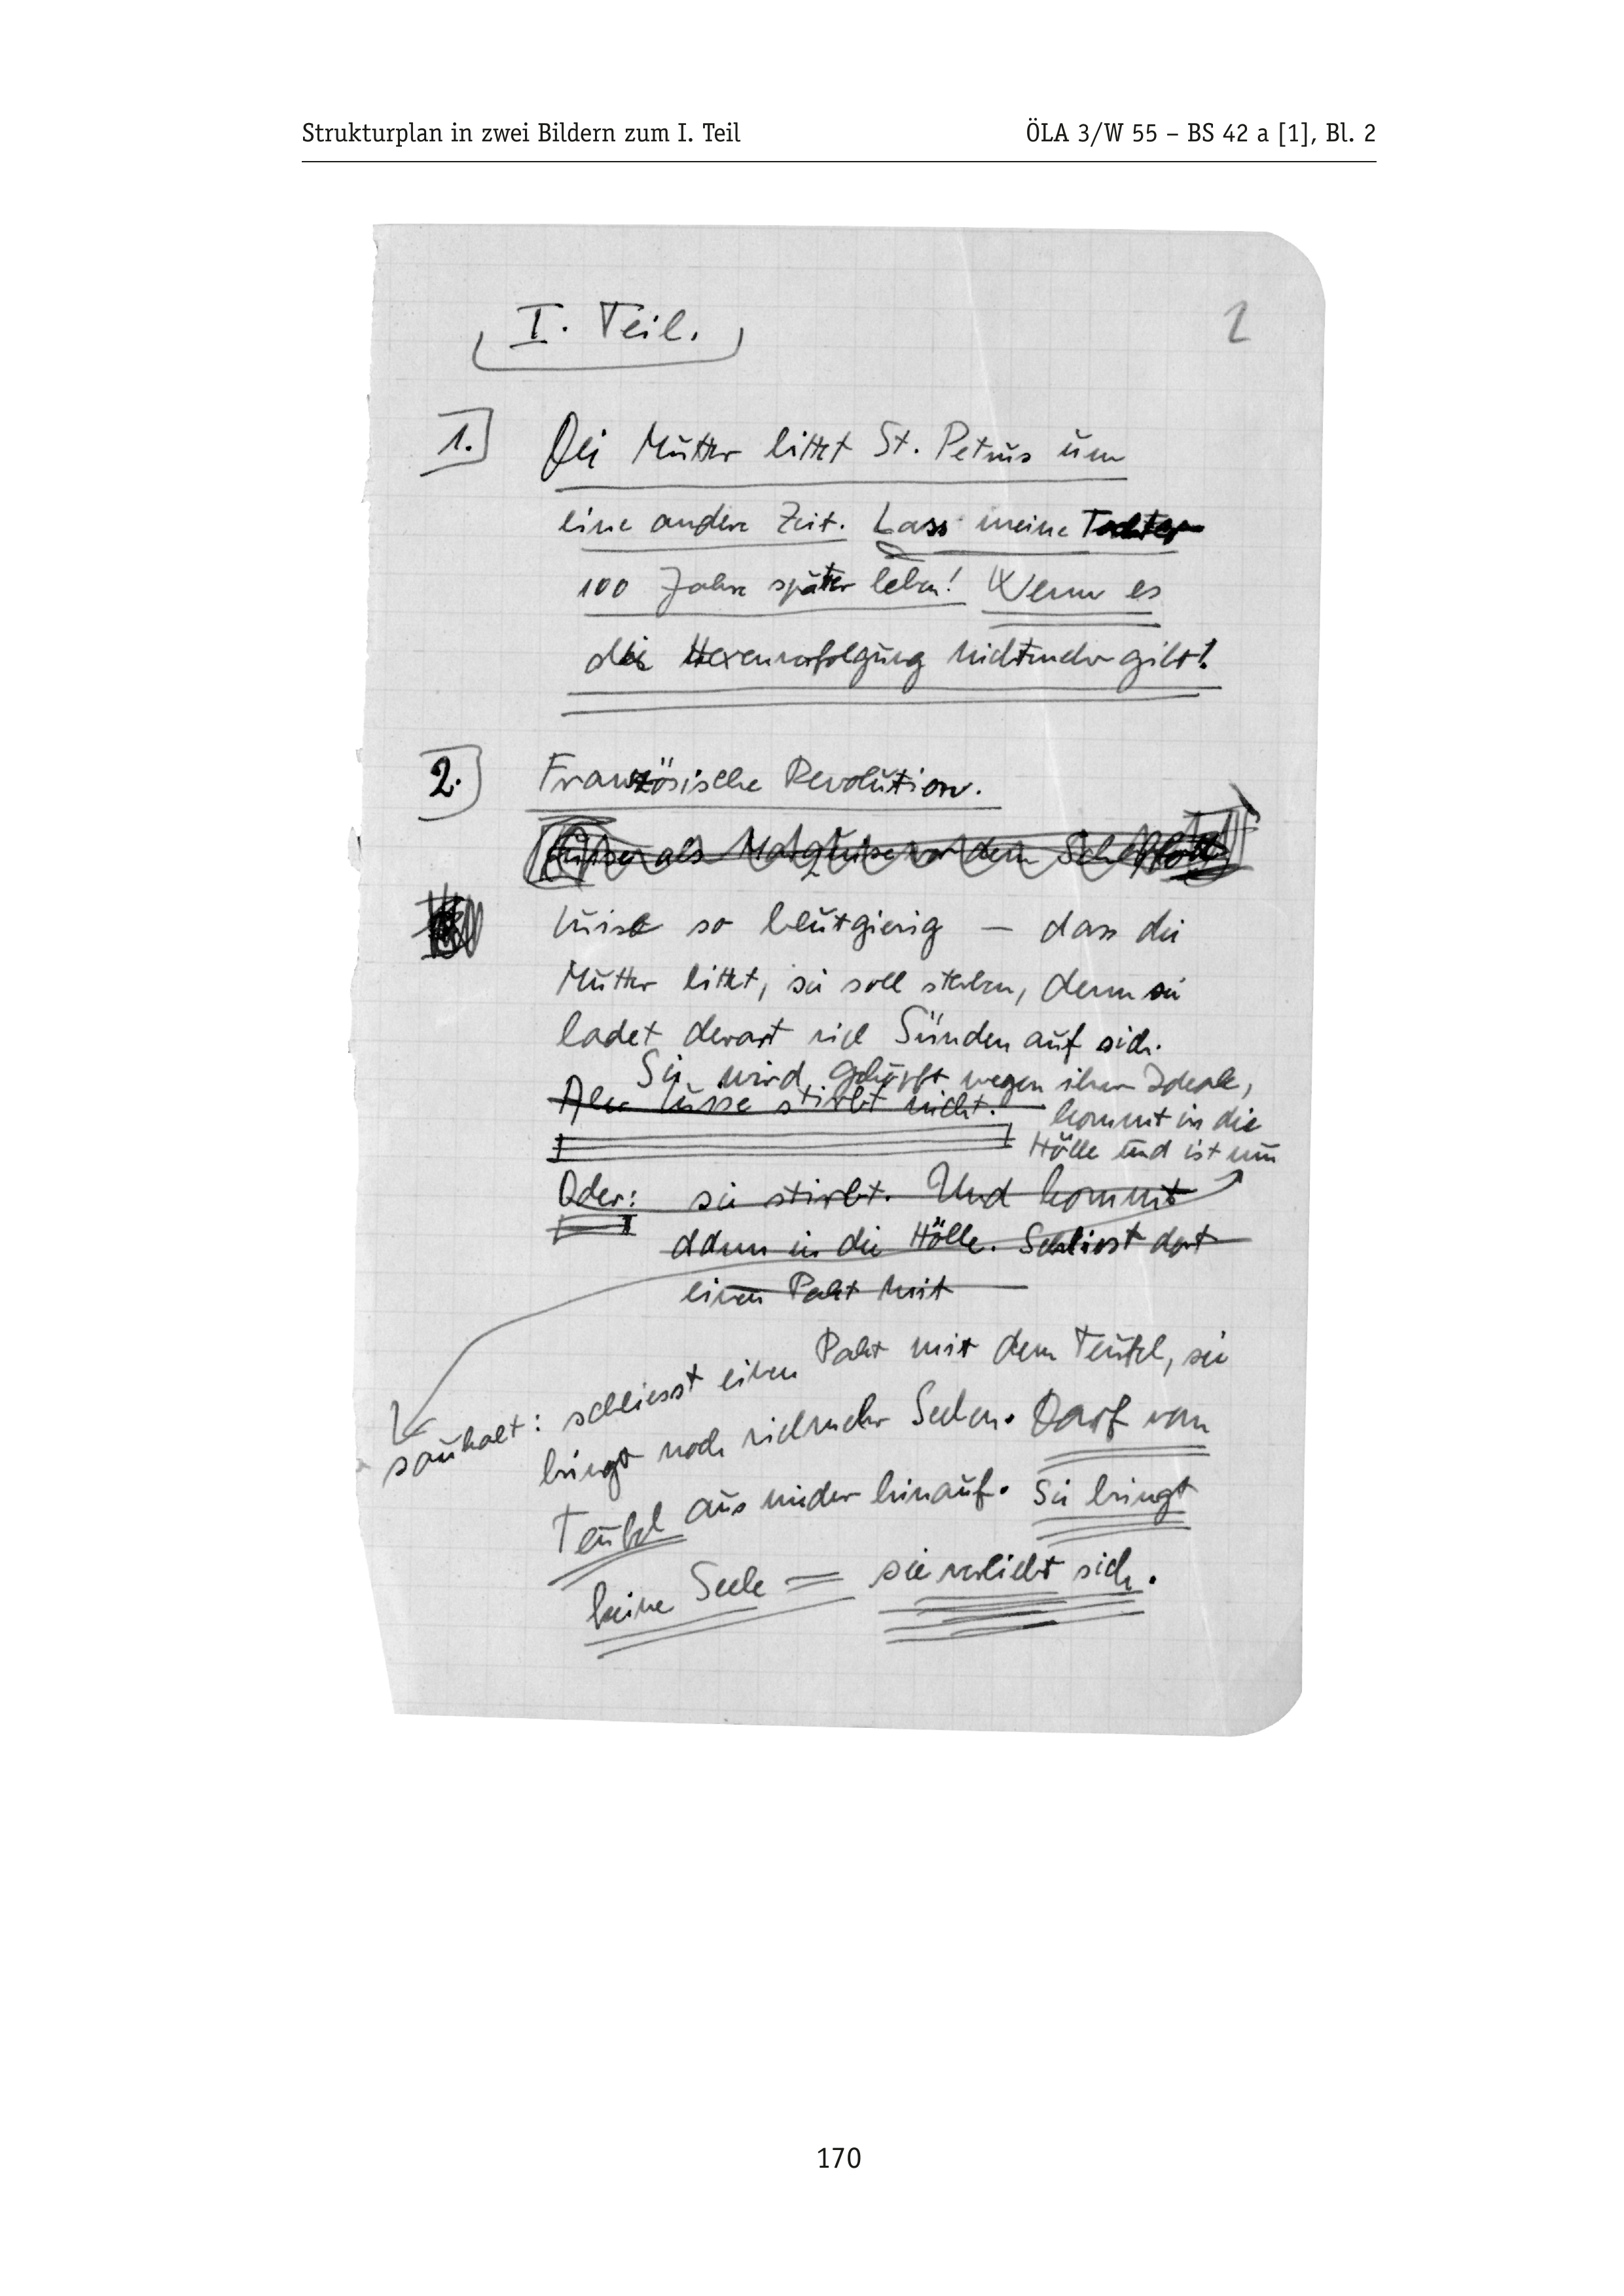 Strukturplan in zwei Bildern zum I. Teil
ÖLA 3/W 55 – BS 42 a [1], Bl. 2
I. Teil.
2
1. Die Mutter bittet St. Petrus um
eine andere Zeit. Lass meine Tochter
100 Jahre später leben! Wenn es
die Hexenverfolgung nichtmehr gibt!
2. Französische Revolution.
Luise als Marquise vor dem Schaffott
Luise so blutgierig — dass die
Mutter bittet, sie soll sterben, denn sie
ladet derart viel Sünden auf sich.
Sie wird geköpft wegen ihrer Ideale,
Aber Luise stirbt nicht.
kommt in die
Hölle und ist nun
Oder: sie stirbt. Und kommt
dann in die Hölle. Schliesst dort
einen Pakt mit
so kalt: schliesst einen Pakt mit dem Teufel, sie
bringt noch vielmehr Seelen. Darf vom
Teufel aus wieder hinauf. Sie bringt
keine Seele = sie verliebt sich.
170